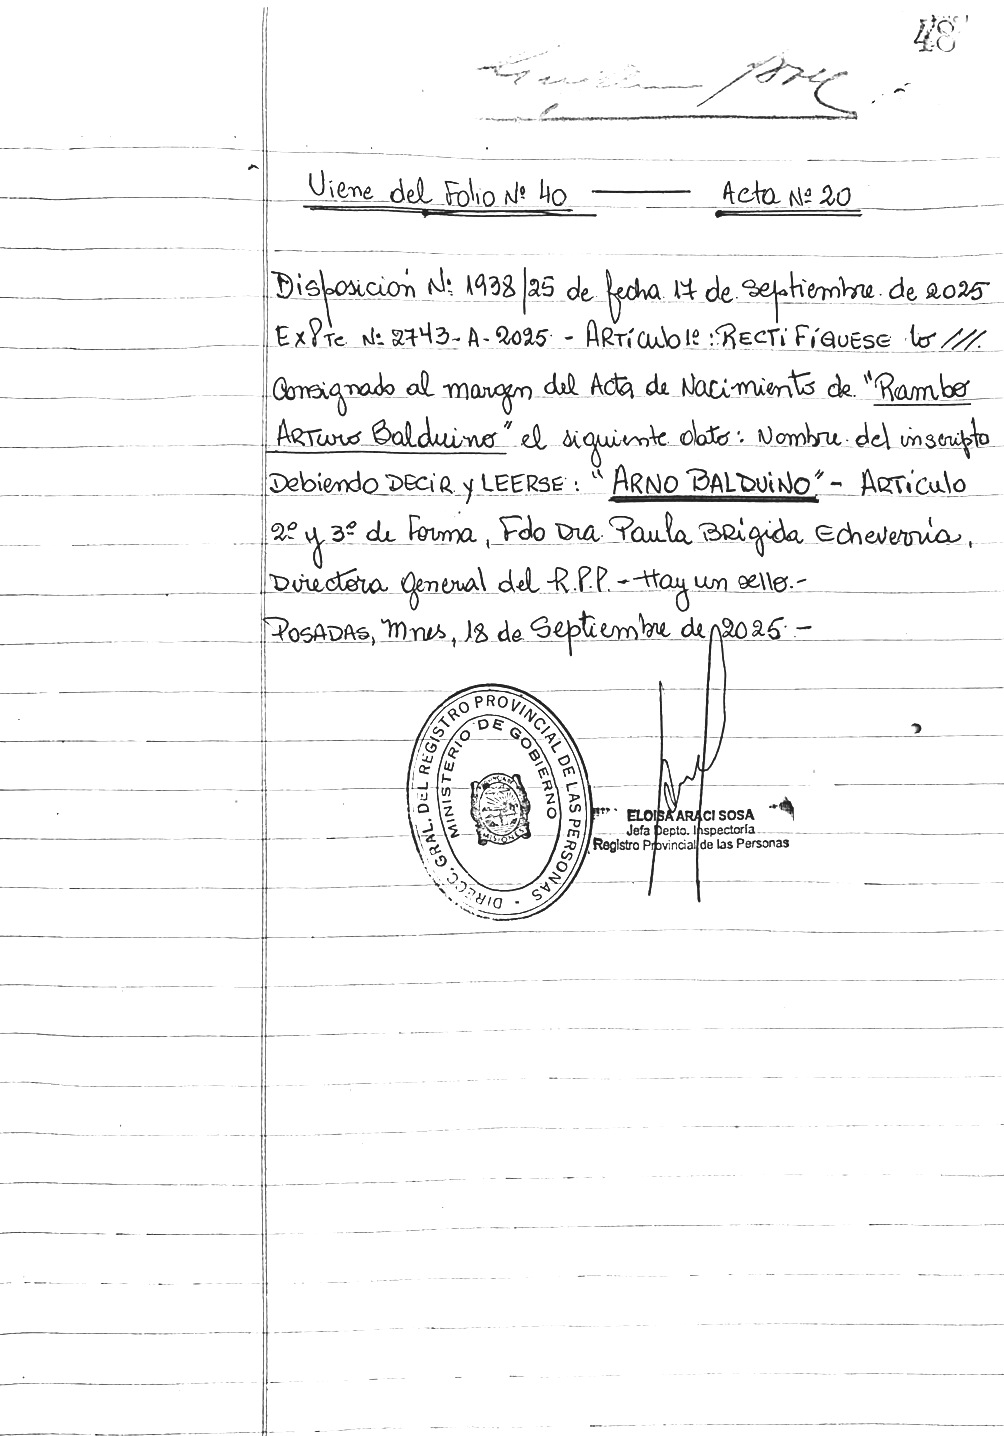 48
Viene del Folio Nº 40 ——— Acta Nº 20
Disposición Nº 1938/25 de fecha 17 de septiembre de 2025
Expte Nº 2743-A-2025 - ARTÍCULO 1º: RECTIFÍQUESE lo ///.
Consignado al margen del Acta de Nacimiento de "Rambo
ARTURO Balduino" el siguiente dato: Nombre del inscripto
Debiendo DECIR y LEERSE: "ARNO BALDUINO" - ARTÍCULO
2º y 3º de Forma, Fdo Dra. Paula BRÍGIDA Echeverría,
Directora General del R.P.P. - Hay un sello.-
POSADAS, Mnes, 18 de Septiembre de 2025 -
DIRECC. GRAL. DEL REGISTRO PROVINCIAL DE LAS PERSONAS
MINISTERIO DE GOBIERNO
MISIONES
ELOISA ARACI SOSA
Jefa Depto. Inspectoría
Registro Provincial de las Personas